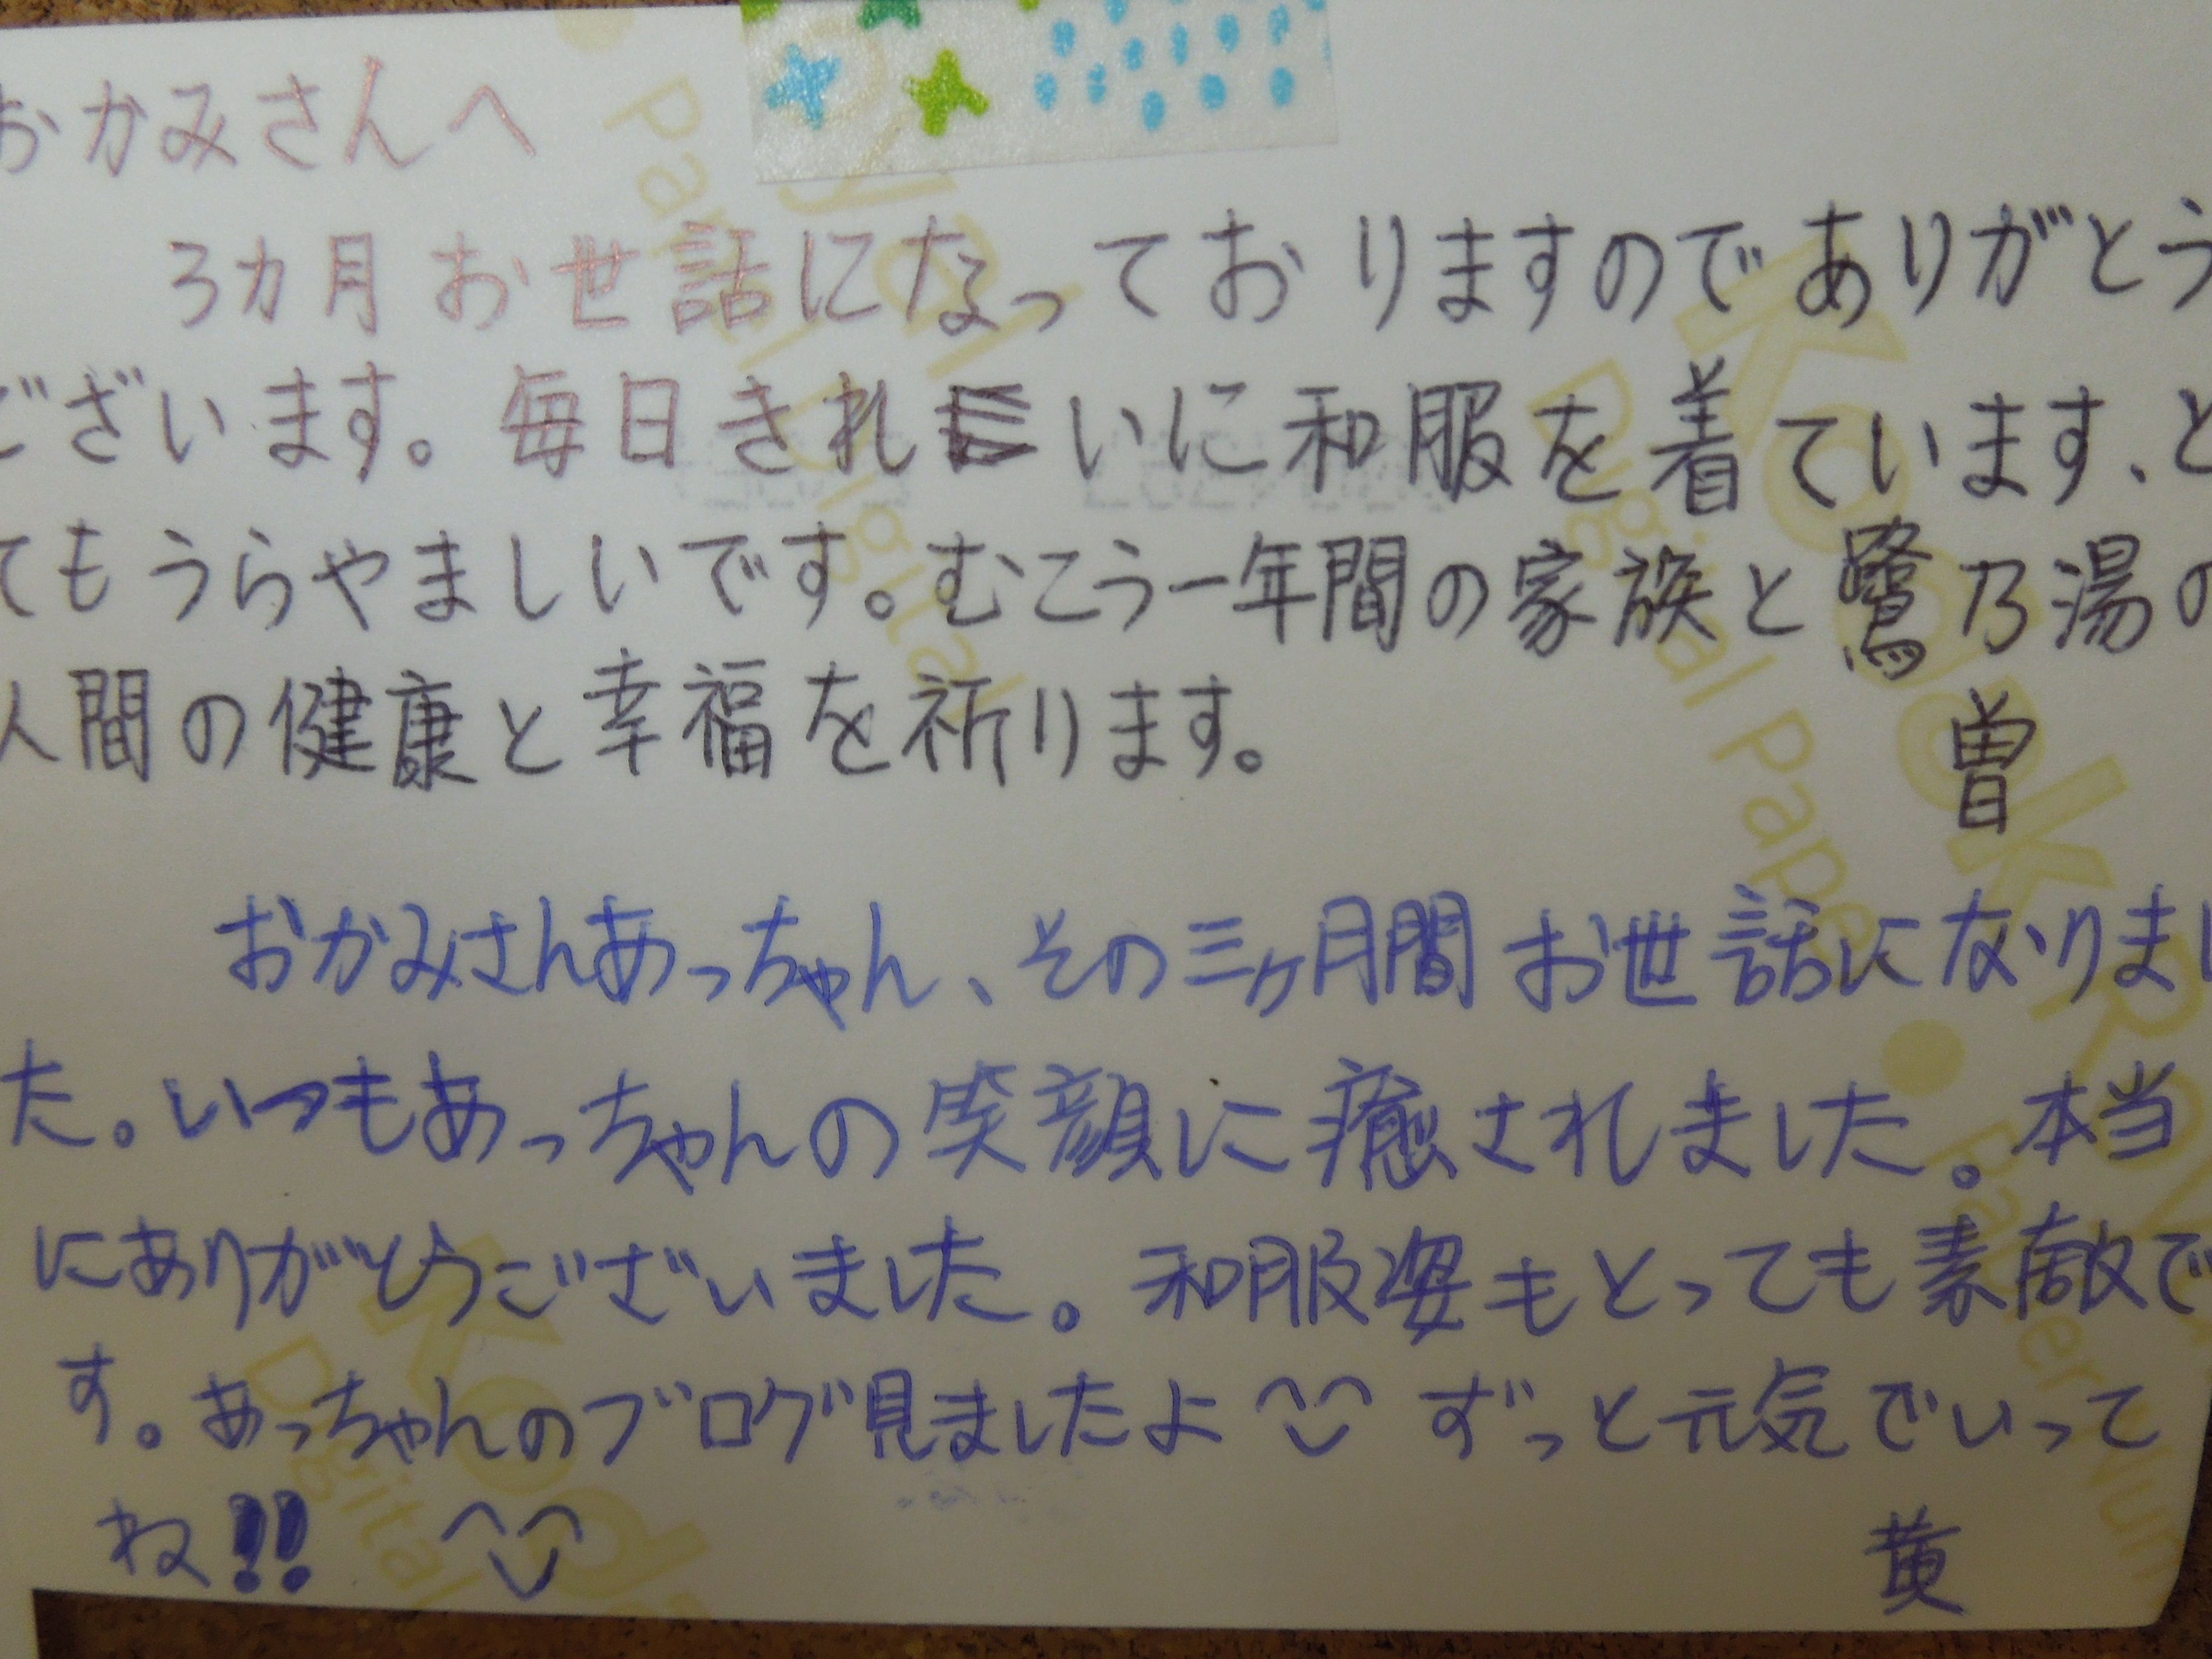 おかみさんへ
3カ月お世話になっておりますのでありがとう
ございます。毎日きれいに和服を着ています、と
てもうらやましいです。むこう一年間の家族と鷺乃湯の
人間の健康と幸福を祈ります。
曽
おかみさんあっちゃん、その三ヶ月間お世話になりまし
た。いつもあっちゃんの笑顔に癒されました。本当
にありがとうございました。和服姿もとっても素敵で
す。あっちゃんのブログ見ましたよ ずっと元気でいって
ね!!
黄
Kodak Royal
Digital Paper